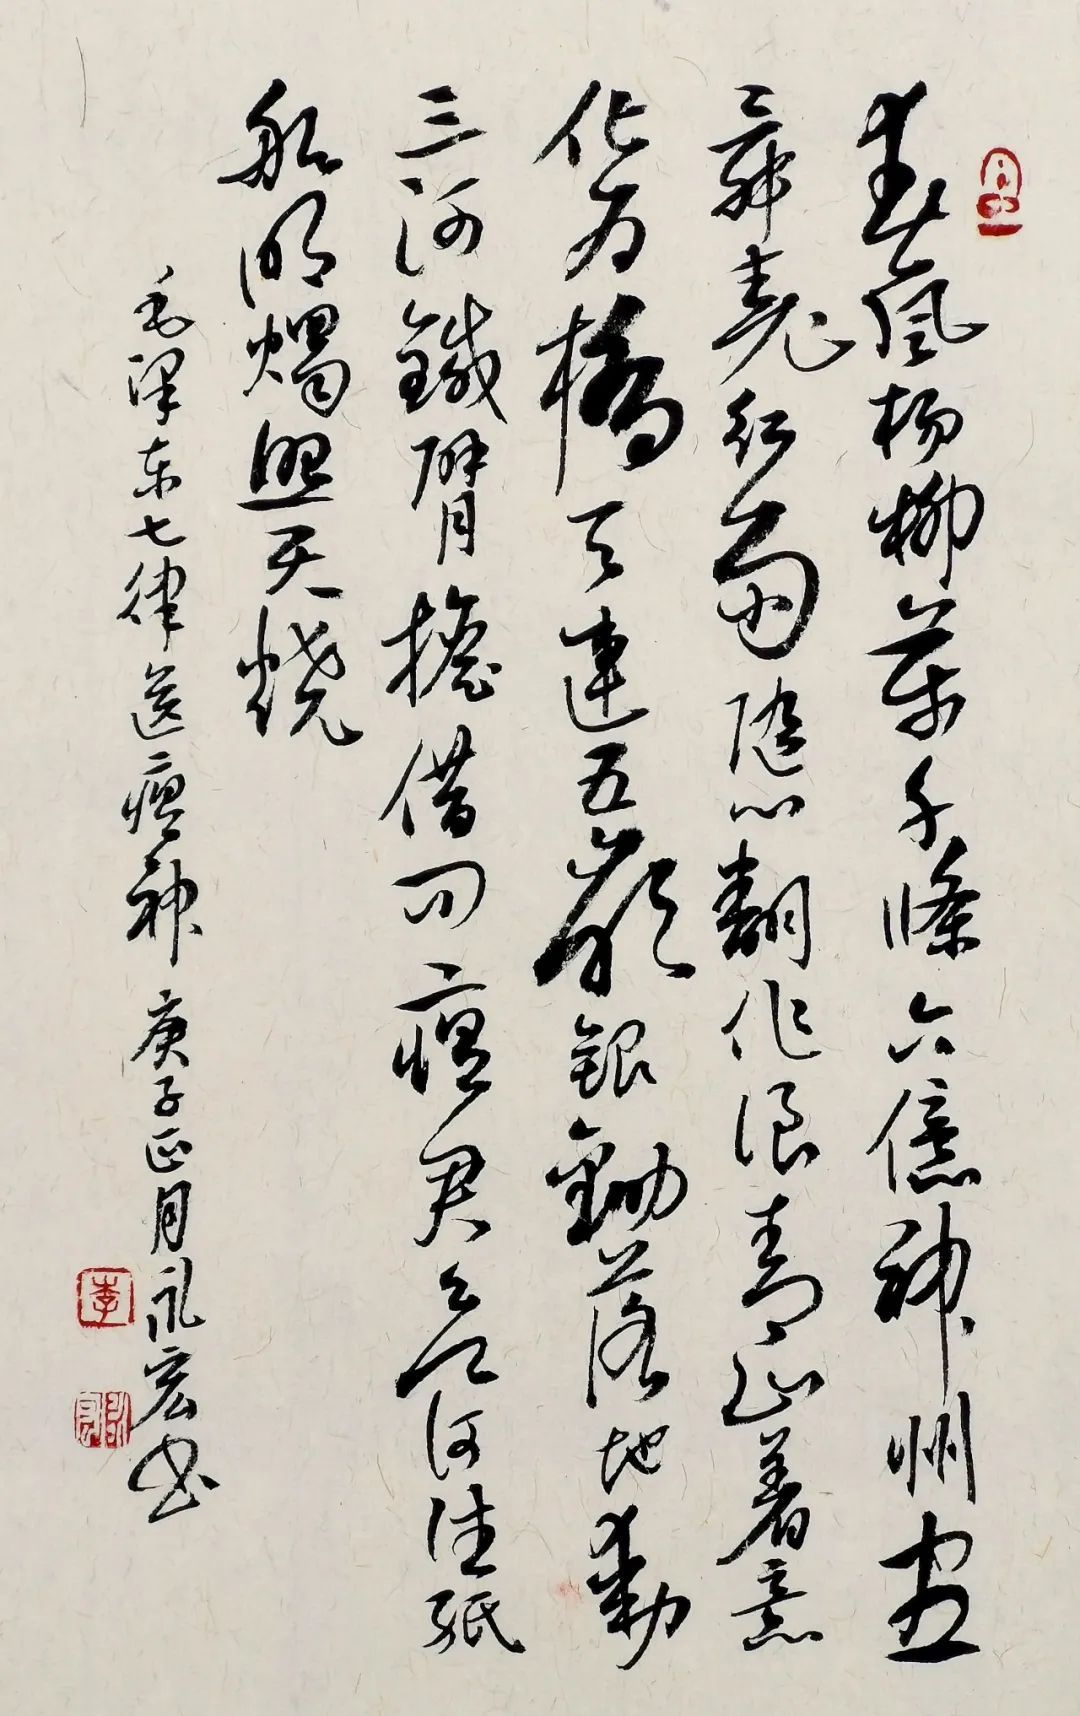 春風杨柳萬千條六億神州盡
舜堯红雨随心翻作浪青山着意
化为橋天連五嶺銀鋤落地動
三河鐵臂搖借问瘟君欲何往纸
船明燭照天燒
毛泽东七律送瘟神 庚子正月永宏书
李